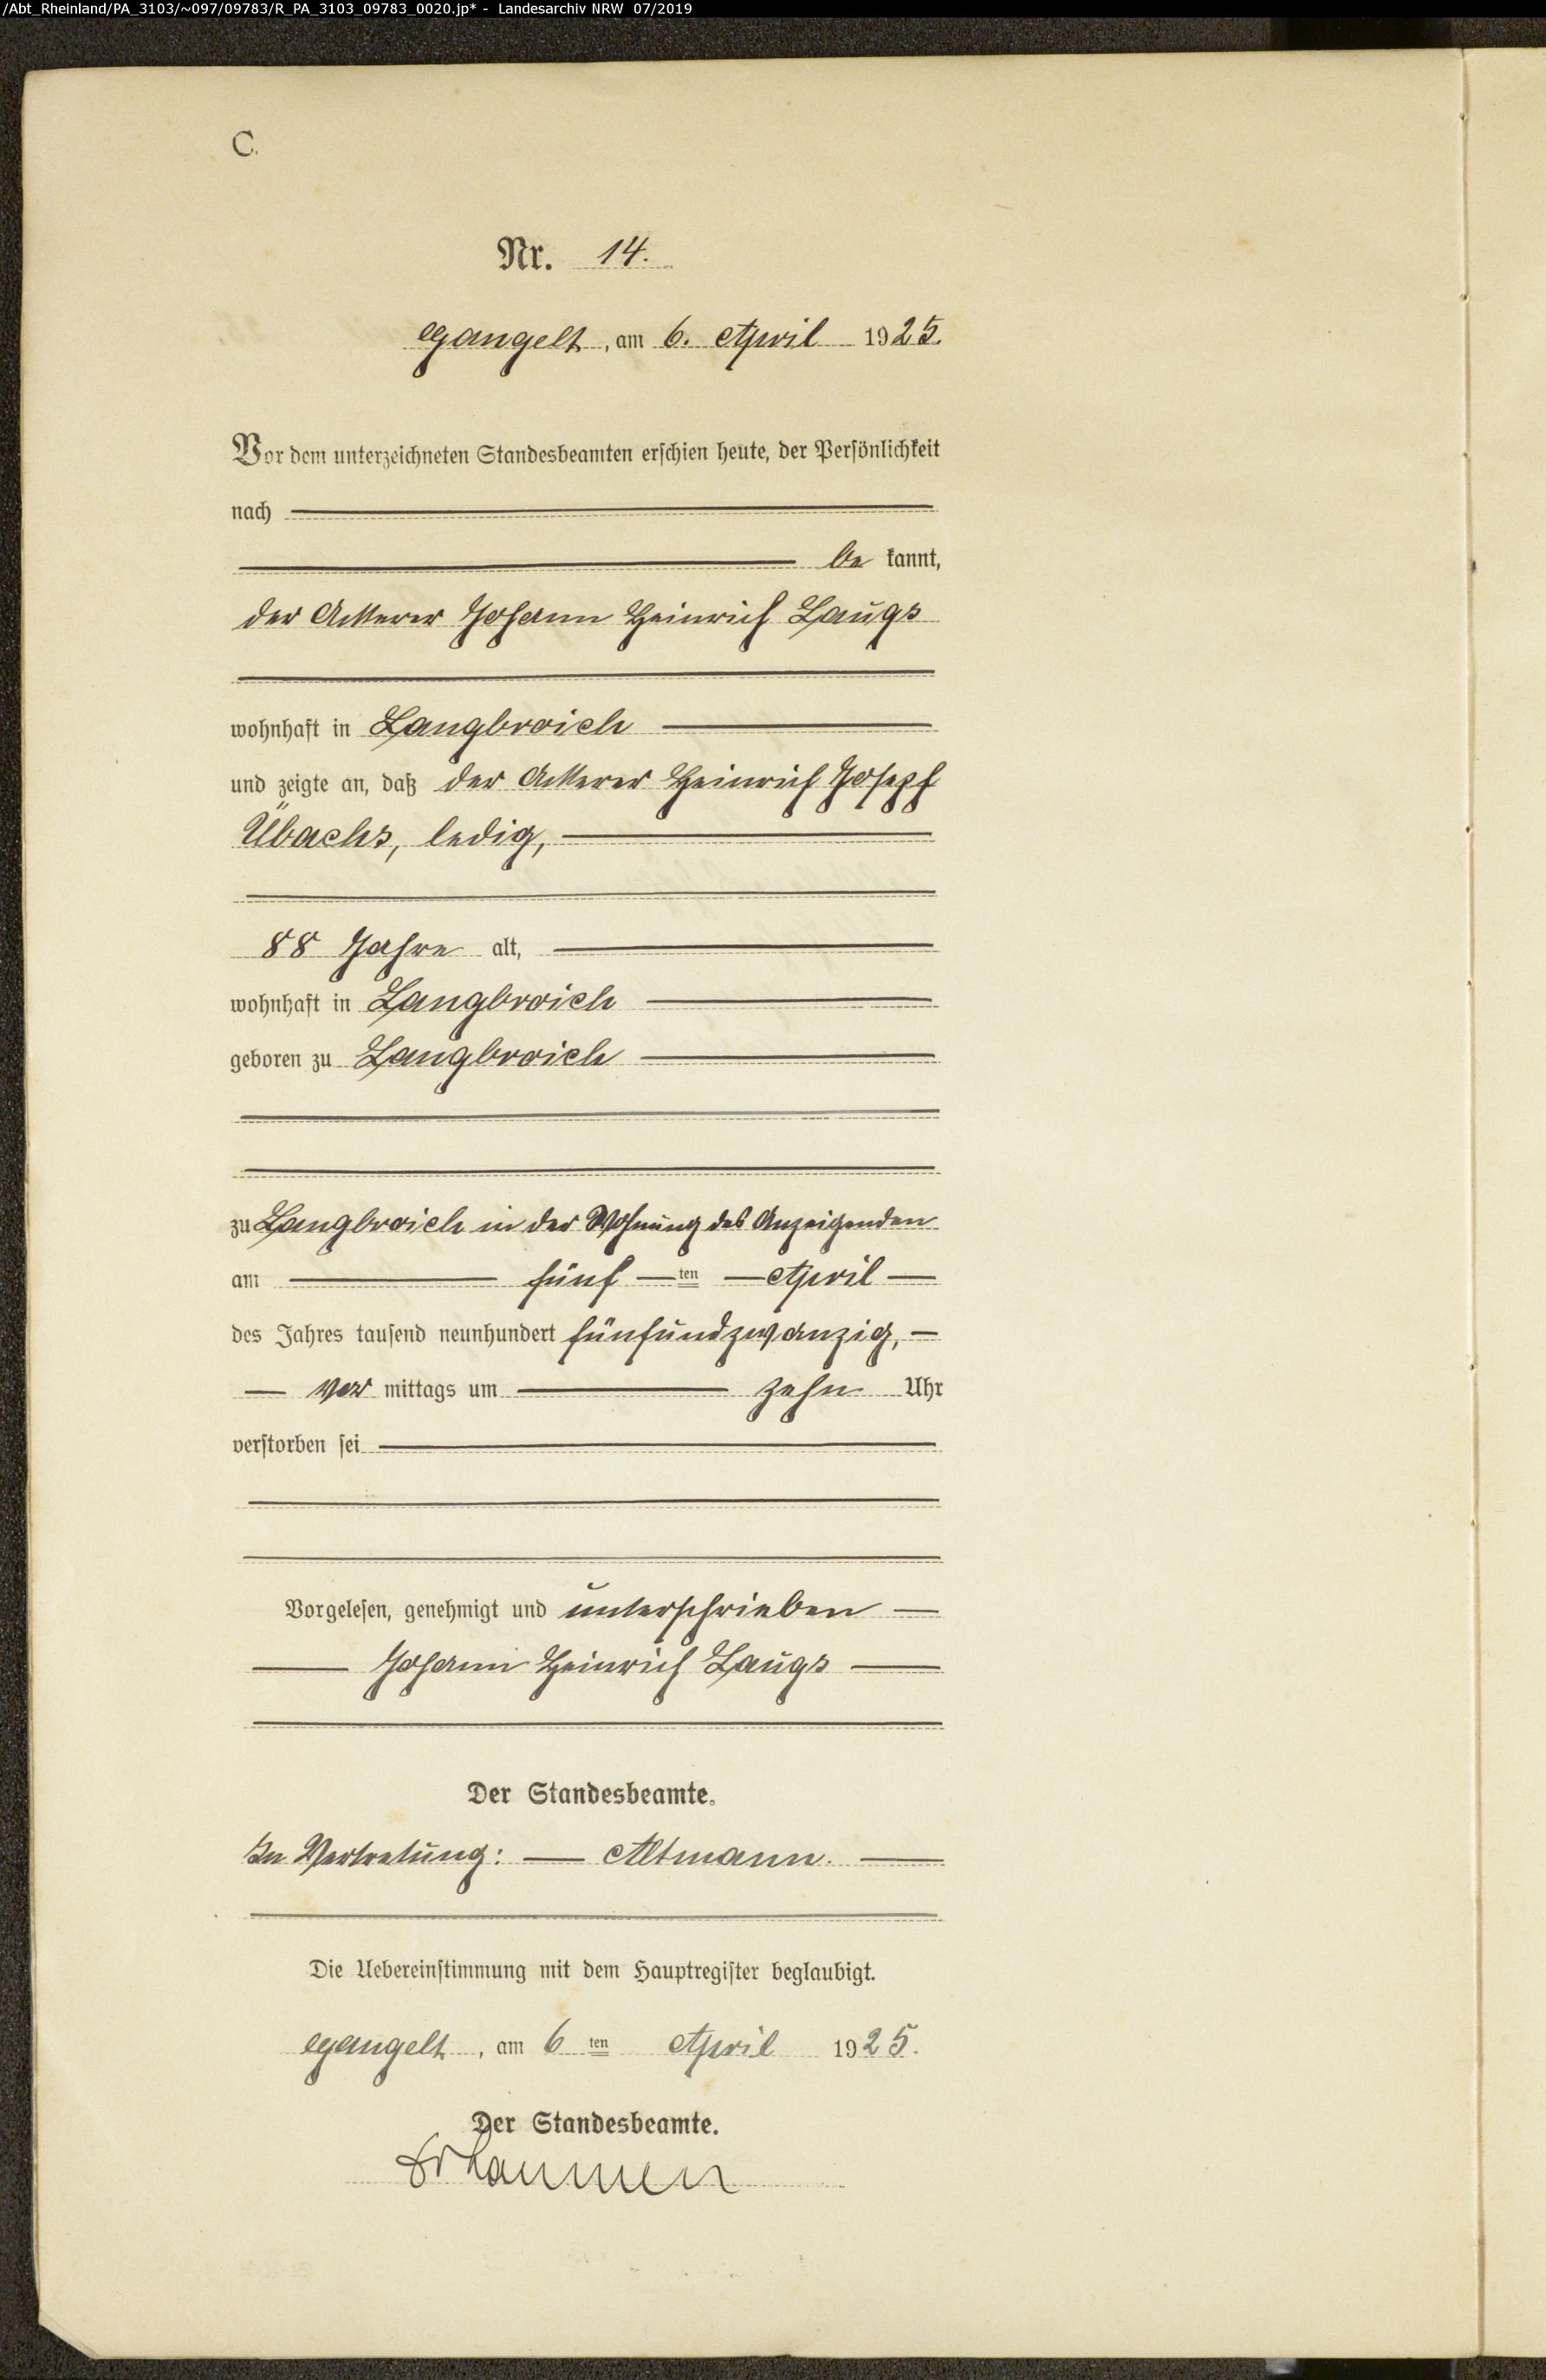 /Abt_Rheinland/PA_3103/~097/09783/R_PA_3103_09783_0020.jp* - Landesarchiv NRW 07/2019
C.
Nr. 14.
Gangelt, am 6. April 1925.
Vor dem unterzeichneten Standesbeamten erschien heute, der Persönlichkeit
nach
be kannt,
der Ackerer Johann Heinrich Laugs
wohnhaft in Langbroich
und zeigte an, daß der Ackerer Heinrich Joseph
Übachs, ledig,
88 Jahre alt,
wohnhaft in Langbroich
geboren zu Langbroich
zu Langbroich in der Wohnung des Anzeigenden
am fünf ten April
des Jahres tausend neunhundert fünfundzwanzig,
vor mittags um zehn Uhr
verstorben sei
Vorgelesen, genehmigt und unterschrieben
Johann Heinrich Laugs
Der Standesbeamte.
In Vertretung: Altmann.
Die Uebereinstimmung mit dem Hauptregister beglaubigt.
Gangelt, am 6 ten April 1925.
Der Standesbeamte.